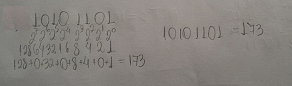 10101101
2⁷2⁶2⁵2⁴2³2²2¹2⁰
128 64 32 16 8 4 2 1
128+0+32+0+8+4+0+1=173
10101101 = 173